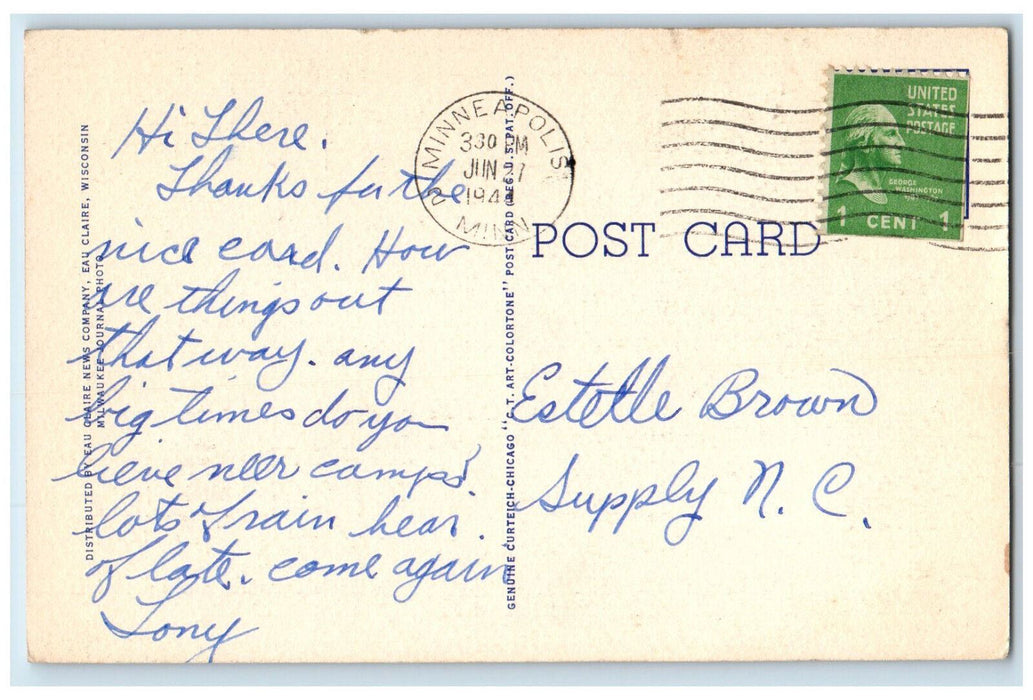 Hi There.
Thanks for the
nice card. How
are things out
that way. any
big times do you
lieve neer camps?
lots of rain hear.
of late. come again
Tony
DISTRIBUTED BY EAU CLAIRE NEWS COMPANY, EAU CLAIRE, WISCONSIN
MILWAUKEE JOURNAL PHOTO
GENUINE CURTEICH-CHICAGO "C.T. ART-COLORTONE" POST CARD (REG. U.S. PAT. OFF.)
MINNEAPOLIS
330 PM
JUN 27
MINN
UNITED
STATES
POSTAGE
GEORGE
WASHINGTON
1 CENT 1
POST CARD
Estelle Brown
Supply N. C.